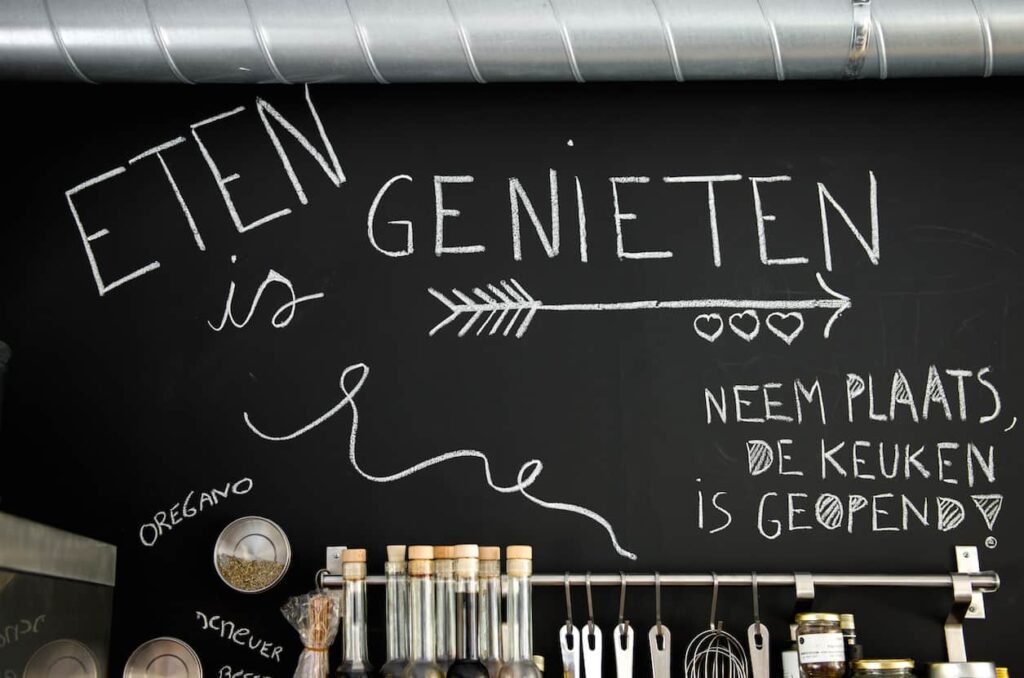 ETEN
is
GENIETEN
NEEM PLAATS,
DE KEUKEN
IS GEOPEND!
OREGANO
JENEVER